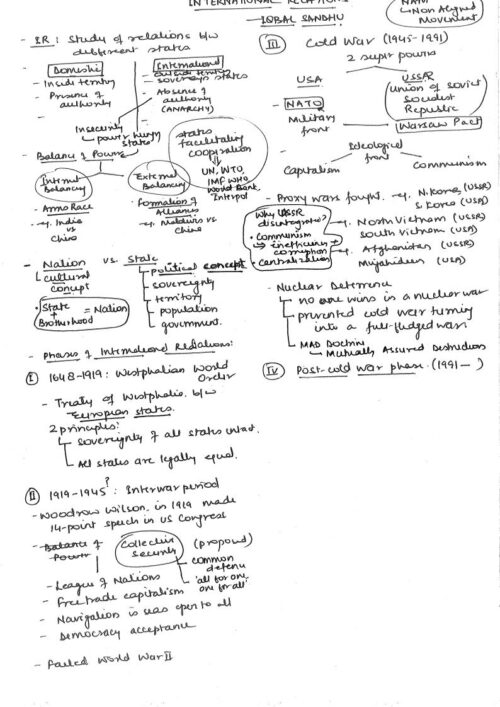 INTERNATIONAL RELATIONS
- IQBAL SANDHU
- IR : Study of relations b/w
different states
Domestic
- Inside territory
- Presence of
authority
-
International
- outside territory
sovereign states
- Absence of
authority
(ANARCHY)
Insecurity
power hungry
states
states
facilitating
cooperation
UN, WTO,
IMF WHO
World Bank
Interpol
- Balance of Power
Internal
Balancing
- Arms Race
- eg. India
vs
China
External
Balancing
- Formation of
Alliances
- eg. Maldives vs
China
- Nation vs. State
cultural
concept
• State
+ = Nation
Brotherhood
political concept
sovereignty
territory
population
government.
- Phases of International Relations:
I 1648-1919: Westphalian World
Order
- Treaty of Westphalia b/w
European states.
2 principles:
- sovereignty of all states intact.
- All states are legally equal.
II 1919-1945?: Interwar period
- Woodrow Wilson in 1919 made
14-point speech in US Congress
- Balance of
Power
Collective
security
(proposed)
- common
defence
- 'all for one,
one for all'
- League of Nations
- Free trade capitalism
- Navigation is seas open to all
- Democracy acceptance
- Failed World War II
NAM
- Non Aligned
Movement
III Cold War (1945-1991)
2 super powers
USA
USSR
Union of Soviet
Socialist
Republic
- NATO
Military
front
Warsaw Pact
- Ideological
front
Capitalism
Communism
- Proxy wars fought.
eg. N. Korea (USSR)
S. Korea (USA)
eg. North Vietnam (USSR)
South Vietnam (USA)
eg. Afghanistan (USSR)
Mujahideen (USA)
Why USSR
disintegrated?
• Communism
→ inefficiency +
corruption
• Centralization
- Nuclear Deterrence
- no one wins in a nuclear war
- prevented cold war turning
into a full-fledged war.
- MAD Doctrine
- Mutually Assured Destruction
IV Post-cold war phase. (1991- )